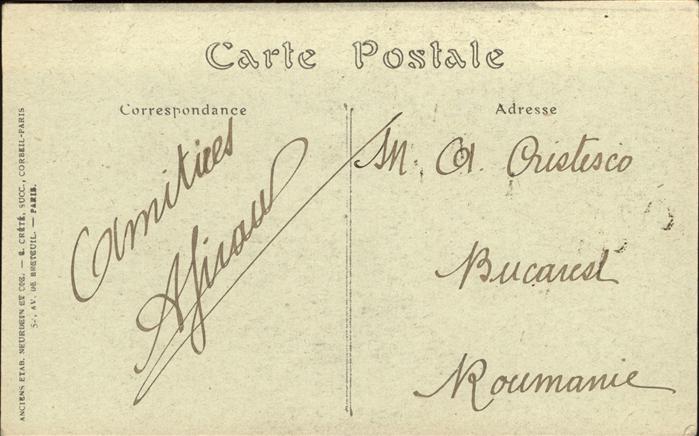 Carte Postale
Correspondance
Adresse
Amitiés
M. A. Cristesco
Bucarest
Roumanie
ANCIENS ETAB. NEURDEIN ET CIE. — E. CRÉTÉ, SUCC., CORBEIL-PARIS
AV. DE BRETEUIL. — PARIS.